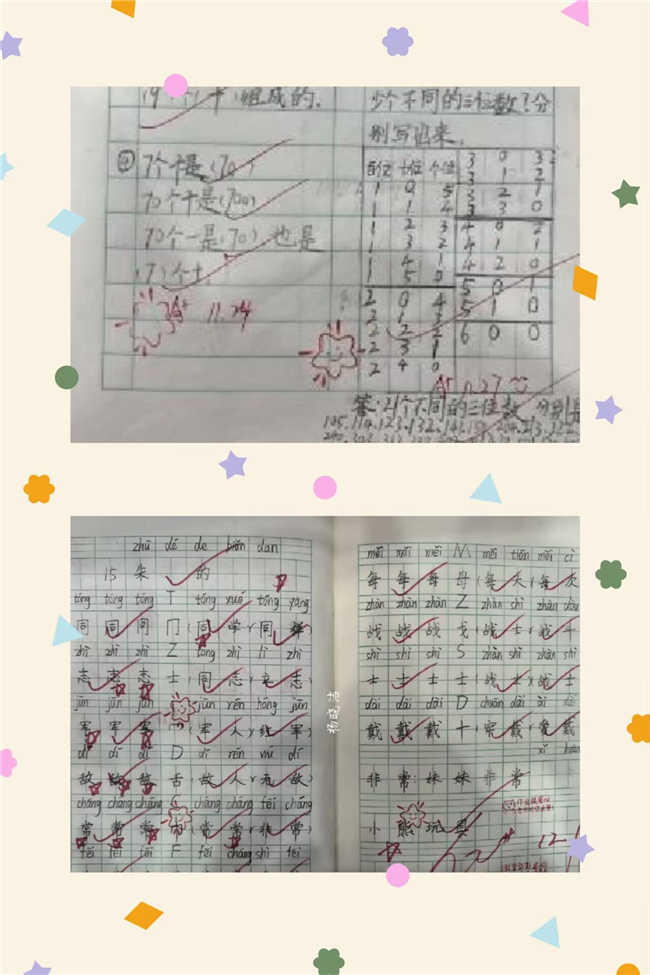 19个(十)组成的.
④7个十是(70)
70个十是(700)
70个一是(70)也是
(7)个十.
A+ 11.24
少个不同的三位数?分
别写出来.
百位 十位 个位
1 0 5
1 1 4
1 2 3
1 3 2
1 4 1
1 5 0
2 0 4
2 1 3
2 2 2
2 3 1
2 4 0
3 0 3
3 1 2
3 2 1
3 3 0
4 0 2
4 1 1
4 2 0
5 0 1
5 1 0
6 0 0
11.27
答:21个不同的三位数,分别是
105.114.123.132.141.150.204.213.222
zhū dé de biǎn dan
15 朱 的
tóng tóng tóng T tóng xué tóng yàng
同 同 同 冂 (同 学) (同 样)
zhì zhì zhì Z tóng zhì lì zhì
志 志 志 士 (同 志) (立 志)
jūn jūn jūn jūn rén hóng jūn
军 军 军 (军 人) (红 军)
dí dí dí D dí rén wú dí
敌 敌 敌 舌 (敌 人) (无 敌)
cháng cháng cháng C cháng cháng fēi cháng
常 常 常 (常 常) (非 常)
fēi fēi fēi F fēi cháng shì fēi
杨晓洁
měi měi měi M měi tiān měi cì
每 每 每 母 (每 天) (每 次)
zhàn zhàn zhàn Z zhàn shì zhàn dòu
战 战 战 戈 (战 士) (战 斗)
shì shì shì S zhàn shì zhàn shì
士 士 士 士 (战 士) (战 士)
dài dài dài D chuān dài ài dài
戴 戴 戴 十 (穿 戴) (爱 戴)
非 常 妹 妹 非 常
小 熊 玩 具